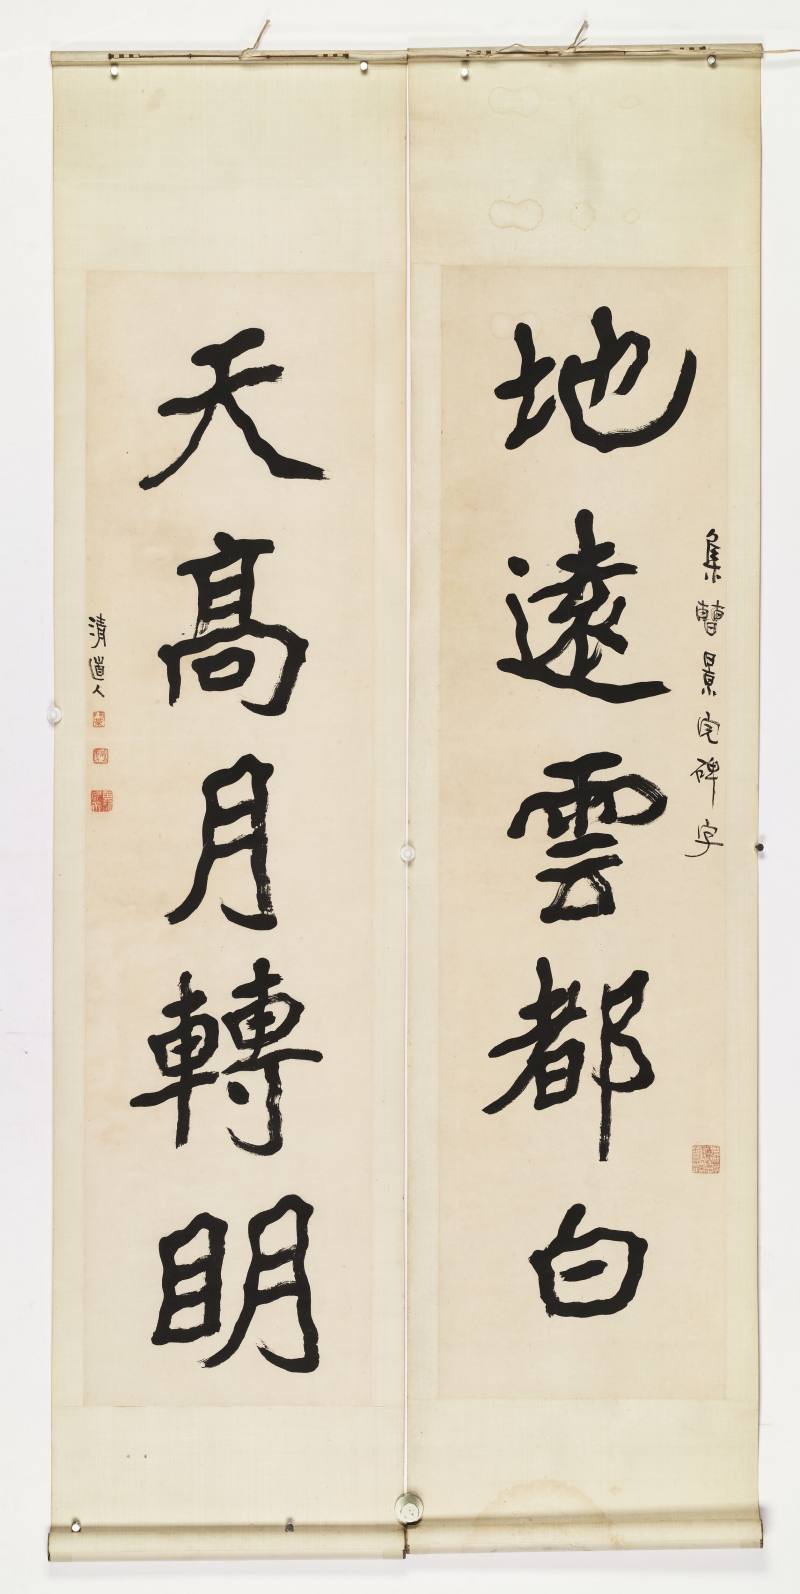 集曹景完碑字
地遠雲都白
天高月轉明
清道人